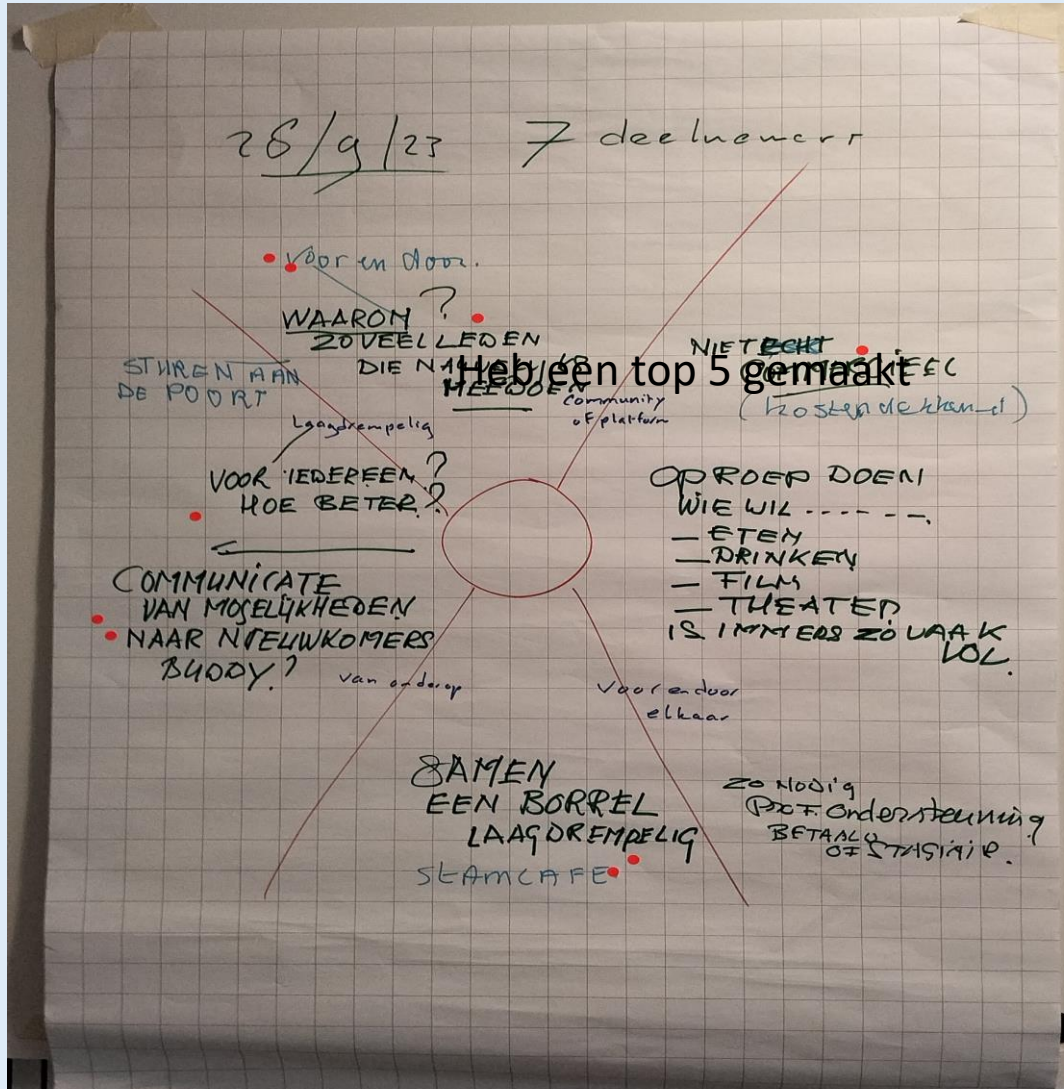 26/9/23 7 deelnemers
voor en door.
WAAROM ?
ZOVEEL LEDEN
DIE
MEEDOEN
Heb een top 5 gemaakt
STUREN AAN
DE POORT
NIET ECHT
(kostendekkend)
community
of platform
Laagdrempelig
VOOR IEDEREEN ?
HOE BETER ?
COMMUNICATE
VAN MOGELIJKHEDEN
NAAR NIEUWKOMERS
BUDDY ?
OPROEP DOEN
WIE WIL - - - - - - .
- ETEN
- DRINKEN
- FILM
- THEATER
IS IMMERS ZO VAAK
VOL.
van onderop
Voor en door
elkaar
SAMEN
EEN BORREL
LAAGDREMPELIG
STAMCAFE
ZO NODIG
PROF. Ondersteuning
BETAALD
OF STAGIAIR.